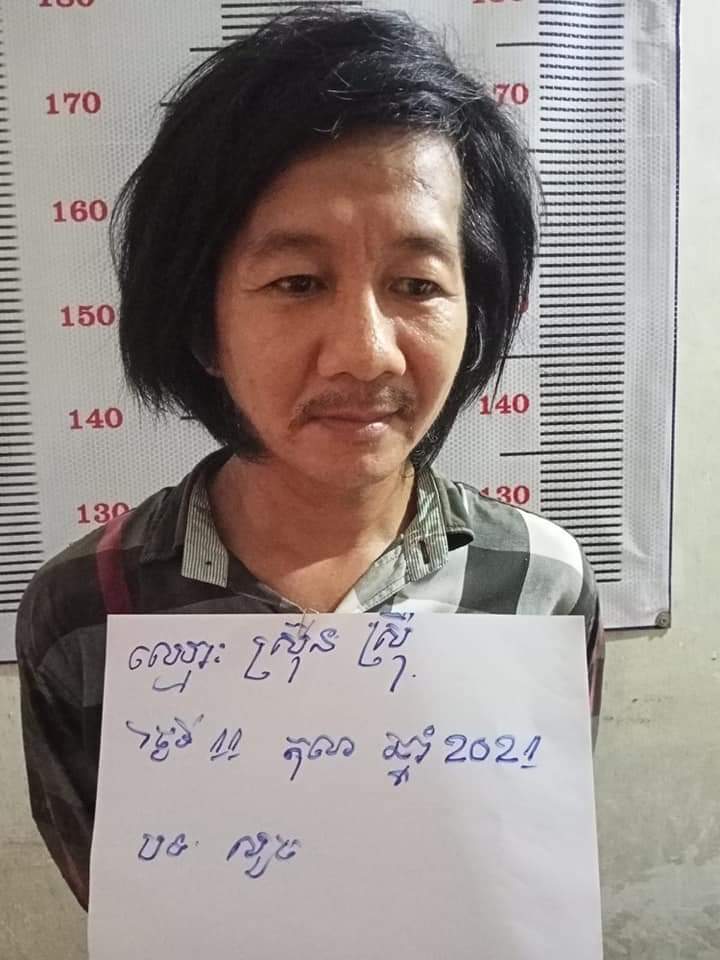 180 180
170 170
160
150
140 140
130 130
ឈ្មោះ ស្រ៊ុន ស្រ៊ី
ថ្ងៃទី 11 តុលា ឆ្នាំ 2021
បទ លួច